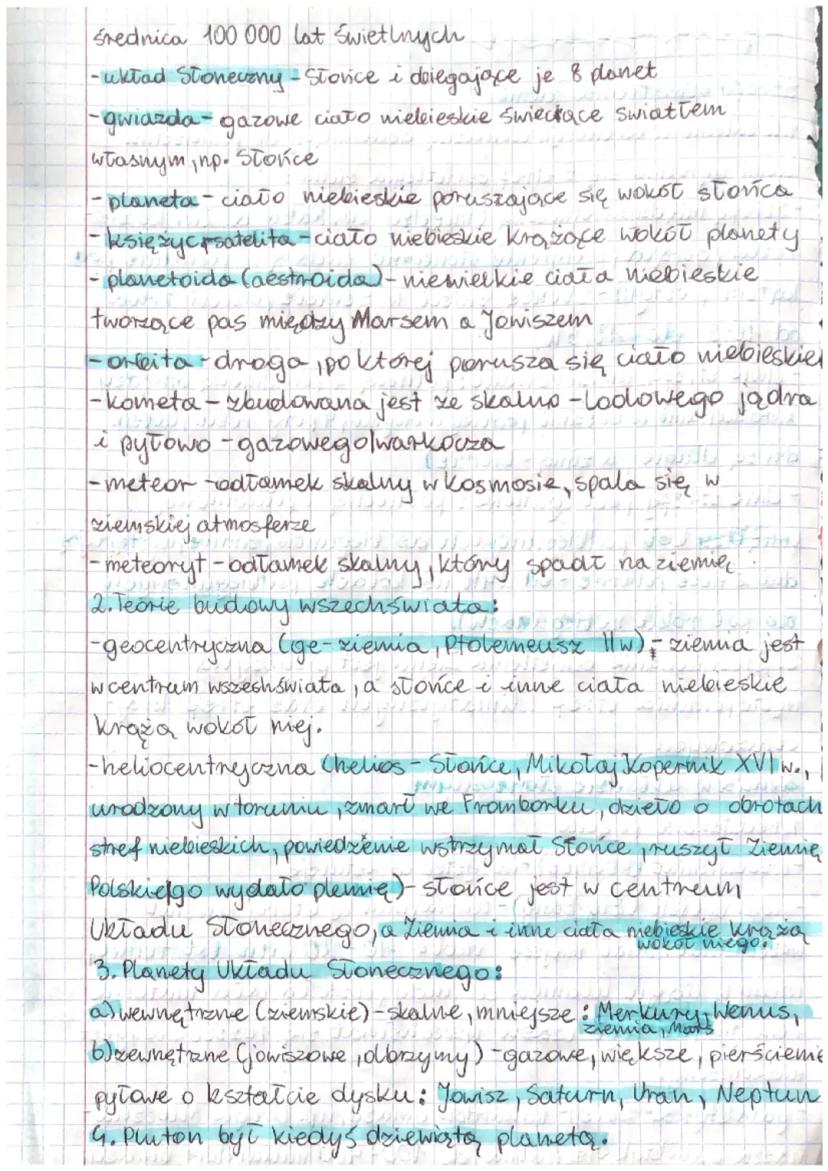 średnica 100 000 lat świetlnych
- układ Słoneczny - Słońce i obiegające je 8 planet
- gwiazda - gazowe ciało niebieskie świecące światłem
własnym, np. Słońce
- planeta - ciało niebieskie poruszające się wokół słońca
- księżyc, satelita - ciało niebieskie krążące wokół planety
- planetoida (aestroida) - niewielkie ciała niebieskie
tworzące pas między Marsem a Jowiszem
- orbita - droga, po której porusza się ciało niebieskie
- kometa - zbudowana jest ze skalno - lodowego jądra
i pyłowo - gazowego warkocza
- meteor - odłamek skalny w kosmosie, spala się w
ziemskiej atmosferze
- meteoryt - odłamek skalny, który spadł na ziemię
2. Teorie budowy wszechświata:
- geocentryczna (ge - ziemia, Ptolemeusz II w) - ziemia jest
w centrum wszeshświata, a słońce i inne ciała niebieskie
krążą wokół niej.
- heliocentryczna (helios - Słońce, Mikołaj Kopernik XVI w.,
urodzony w toruniu, zmarł we Fromborku, dzieło o obrotach
stref niebieskich, powiedzenie wstrzymał Słońce, ruszył Ziemię
Polskie go wydało plemię) - słońce jest w centrum
Układu Słonecznego, a Ziemia i inne ciała niebieskie krążą
wokół niego.
3. Planety Układu Słonecznego:
a) wewnętrzne (ziemskie) - skalne, mniejsze: Merkury, Wenus,
ziemia, Mars
b) zewnętrzne (jowiszowe, olbrzymy) - gazowe, większe, pierścienie
pyłowe o kształcie dysku: Jowisz, Saturn, Uran, Neptun
4. Pluton był kiedyś dziewiątą planetą.